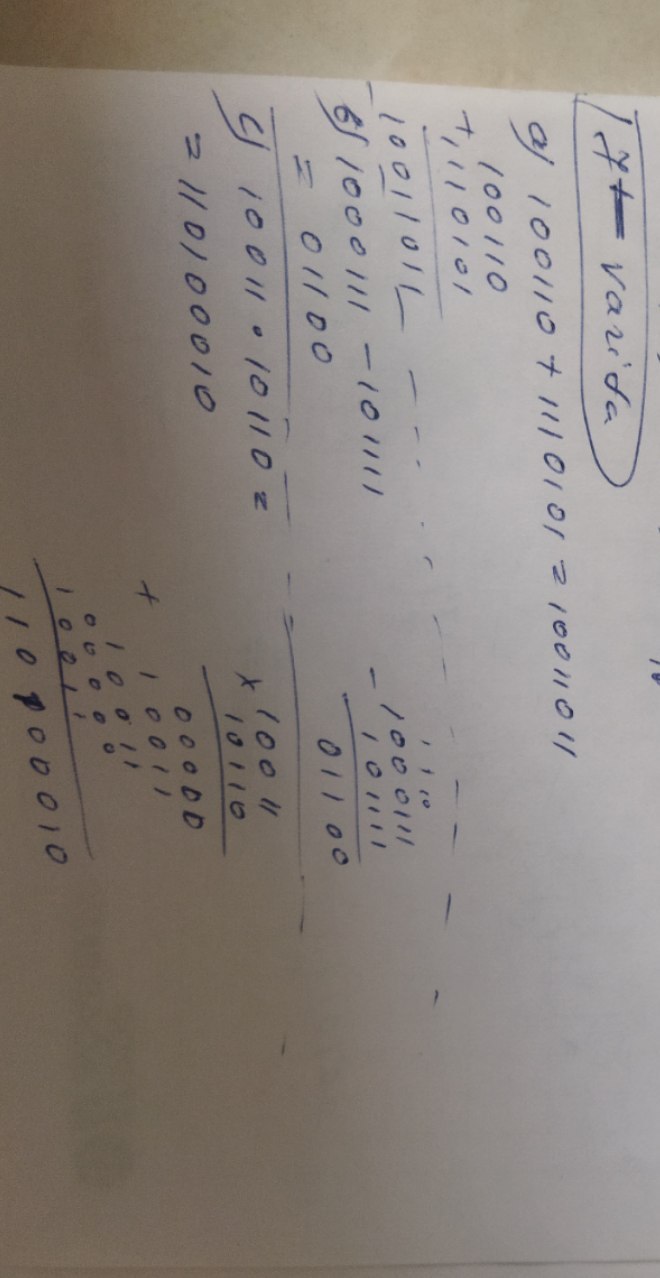 7- varida
a) 100110 + 1110101 = 10011011
100110
+ 1110101
10011011
b) 1000111 - 101111
= 01100
1110
- 1000111
101111
01100
c) 10011 · 10110 =
= 110100010
× 10011
10110
00000
+ 10011
10011
00000
10011
110100010